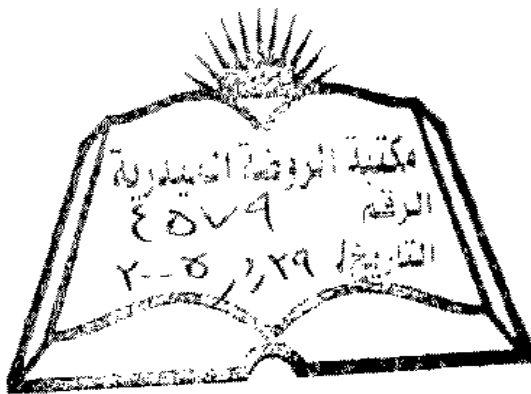 مكتبة الروضة الحيدرية
الرقم ٤٥٧٩
التاريخ ٢٩